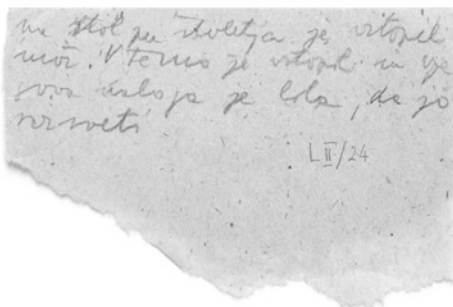 na stol pa stoletja je vstopil
mož. V temo je vstopil in nje
gova naloga je bila, da jo
razsveti
LII/24